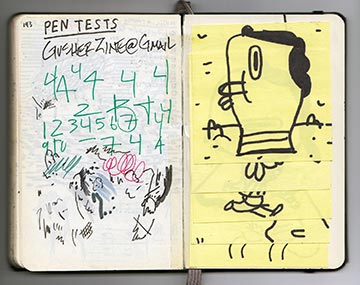 143
PEN TESTS
GUSHERZINE@GMAIL
4 4 4 4 4 4
1 2 3 4 5 6 7 4
7 4 4